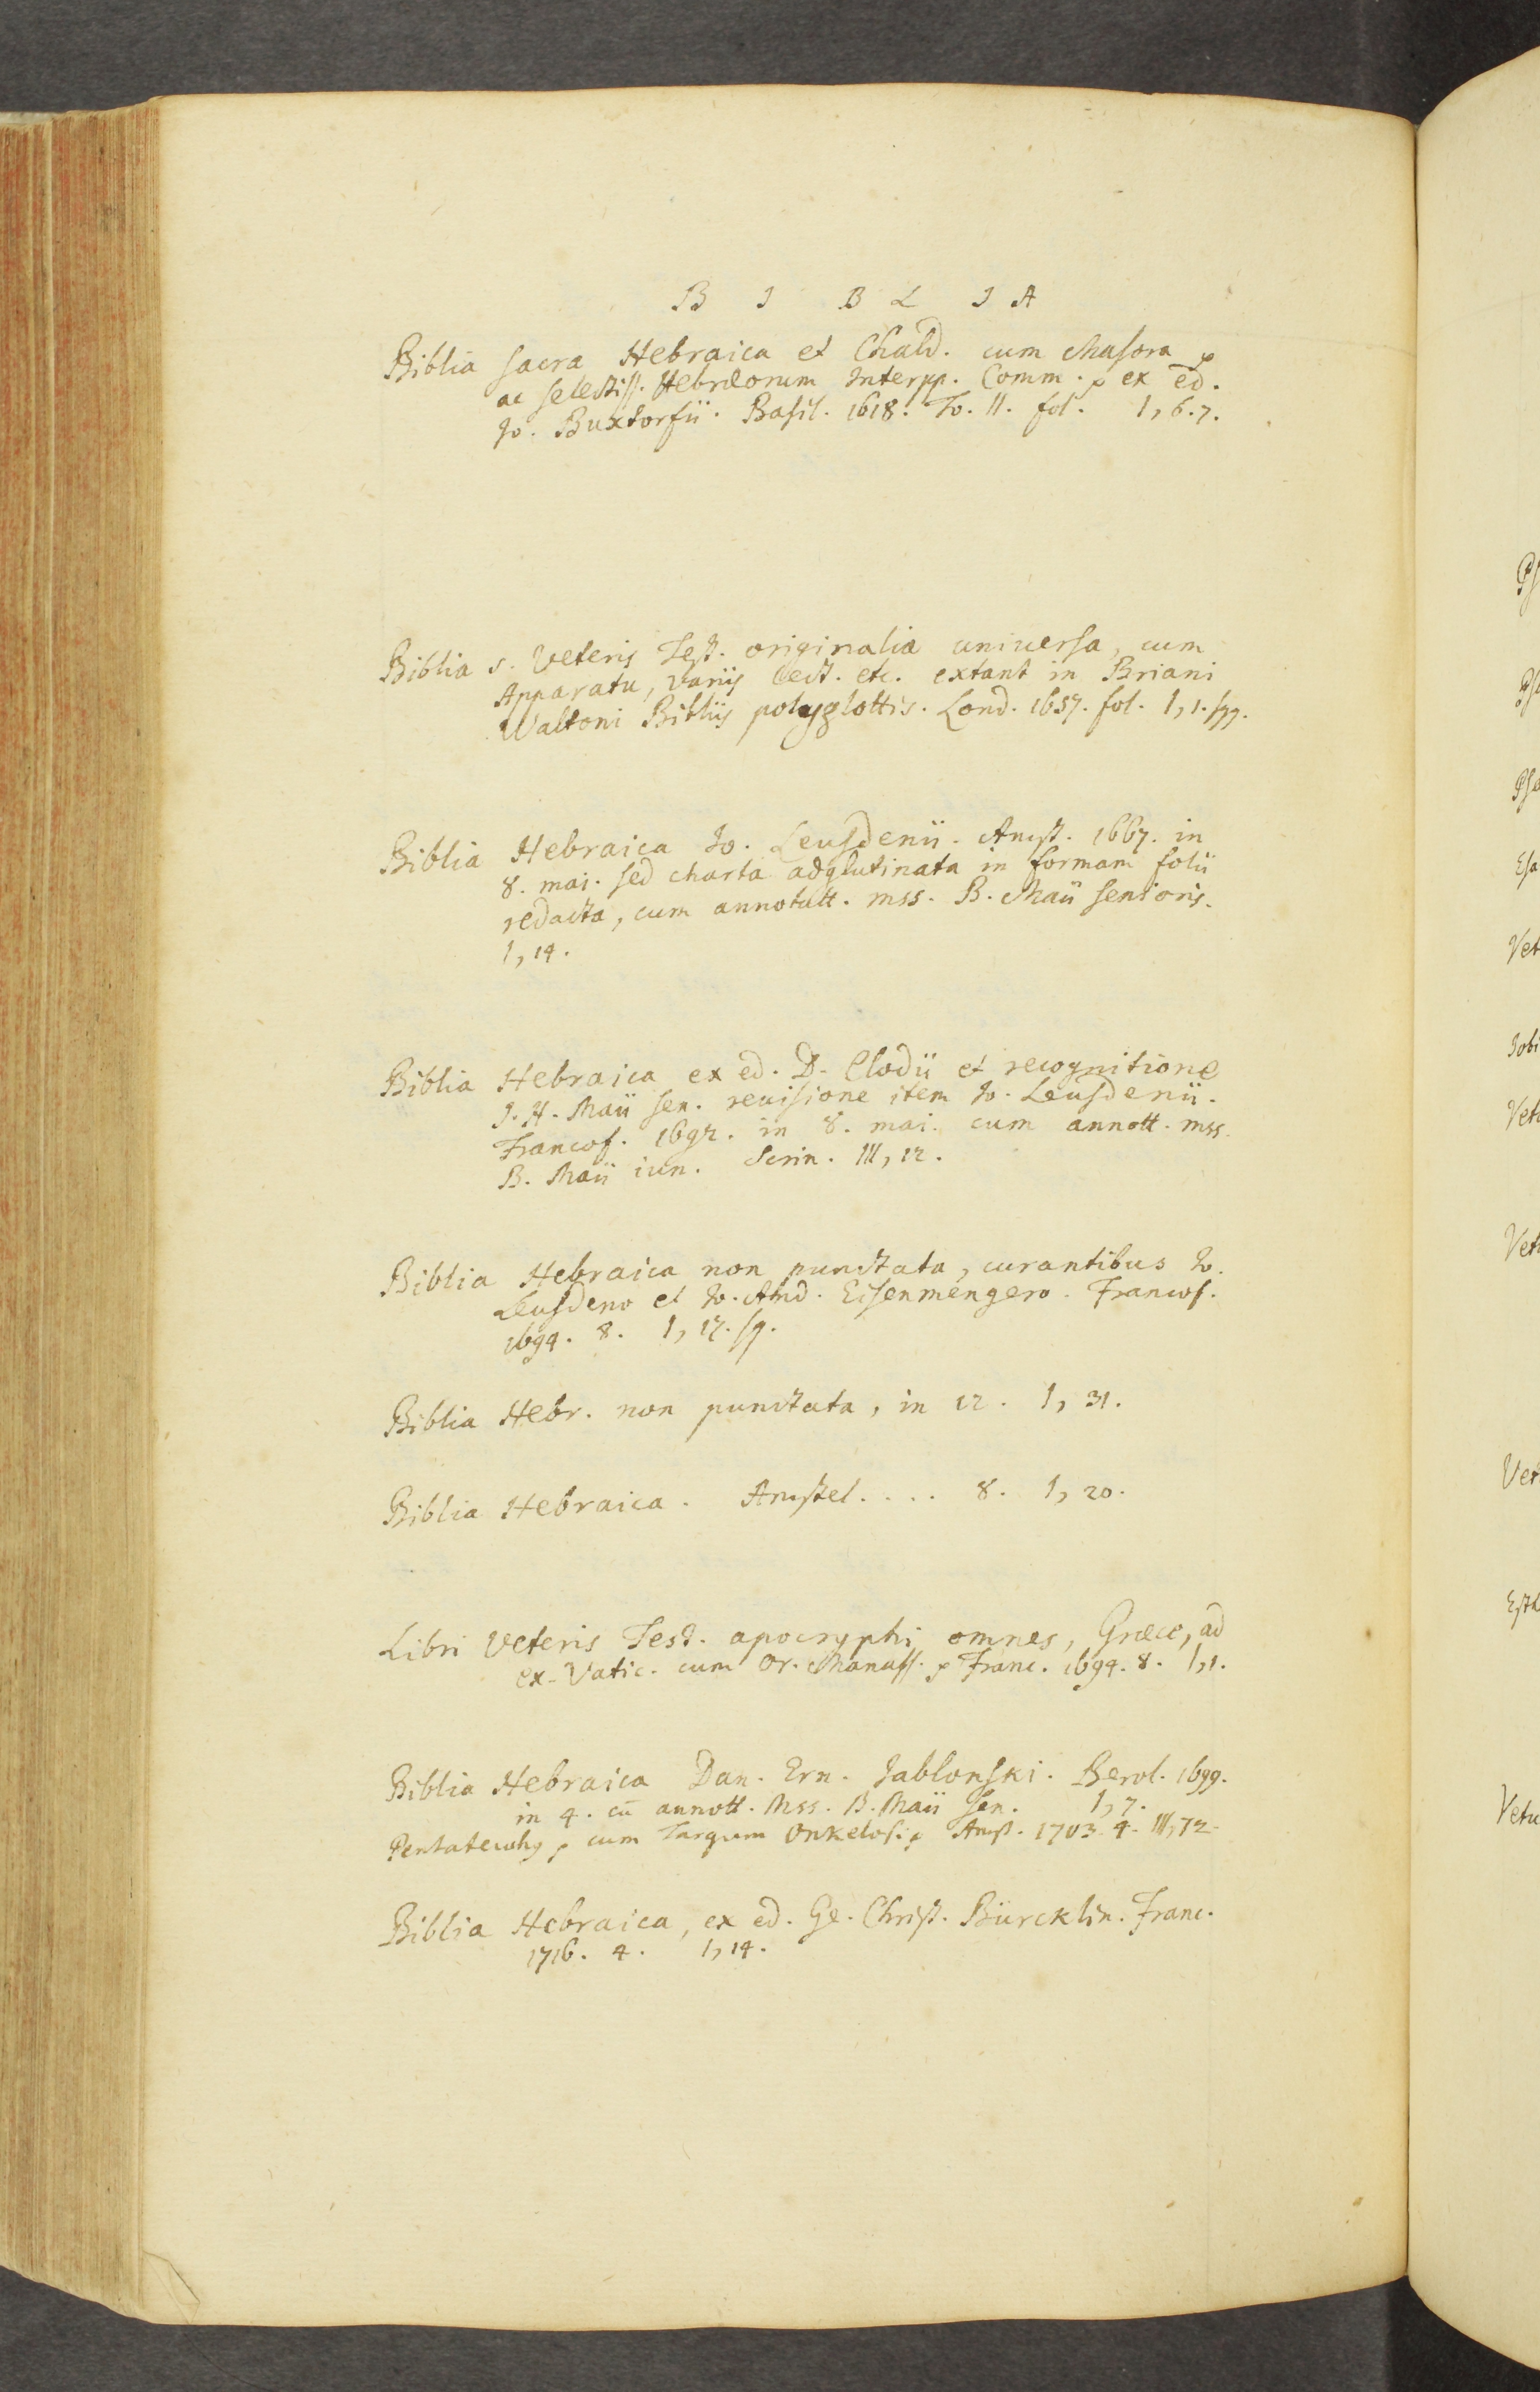 B I B L I A
Biblia sacra Hebraica et Chald. cum Masora
ac selectiss. Hebræorum Interpp. Comm. ex ed.
Jo. Buxtorfii. Basil. 1618. To. II. fol. I, 6.7.
Biblia s. Veteris Test. originalia universa, cum
Apparatu, variis lect. etc. extant in Briani
Waltoni Bibliis polyglottis. Lond. 1657. fol. I, 1. sqq.
Biblia Hebraica Jo. Leusdenii. Amst. 1667. in
8. mai. sed charta adglutinata in formam folii
redacta, cum annotatt. mss. B. Maii senioris.
I, 14.
Biblia Hebraica ex ed. D. Clodii et recognitione
J. H. Maii sen. reuisione item Jo. Leusdenii.
Francof. 1692. in 8. mai. cum annott. mss.
B. Maii iun. Scrin. III, 12.
Biblia Hebraica non punctata, curantibus Jo.
Leusdeno et Jo. And. Eisenmengero. Francof.
1694. 8. I, 17. sq.
Biblia Hebr. non punctata, in 12. I, 31.
Biblia Hebraica. Amstel. . . . 8. I, 20.
Libri Veteris Test. apocryphi omnes, Græce, ad
ex. Vatic. cum Or. Manass. Franc. 1694. 8. I, 1.
Biblia Hebraica Dan. Ern. Jablonski. Berol. 1699.
in 4. cū annott. Mss. B. Maii sen. I, 7.
Pentateuchg cum Targum Onkelosi Amst. 1703. 4. III, 72.
Biblia Hebraica, ex ed. Ge. Christ. Bürcklin. Franc.
1716. 4. I, 14.
Esa
Vet
Jobi
Vet
Vet
Vet
Esth
Vetu